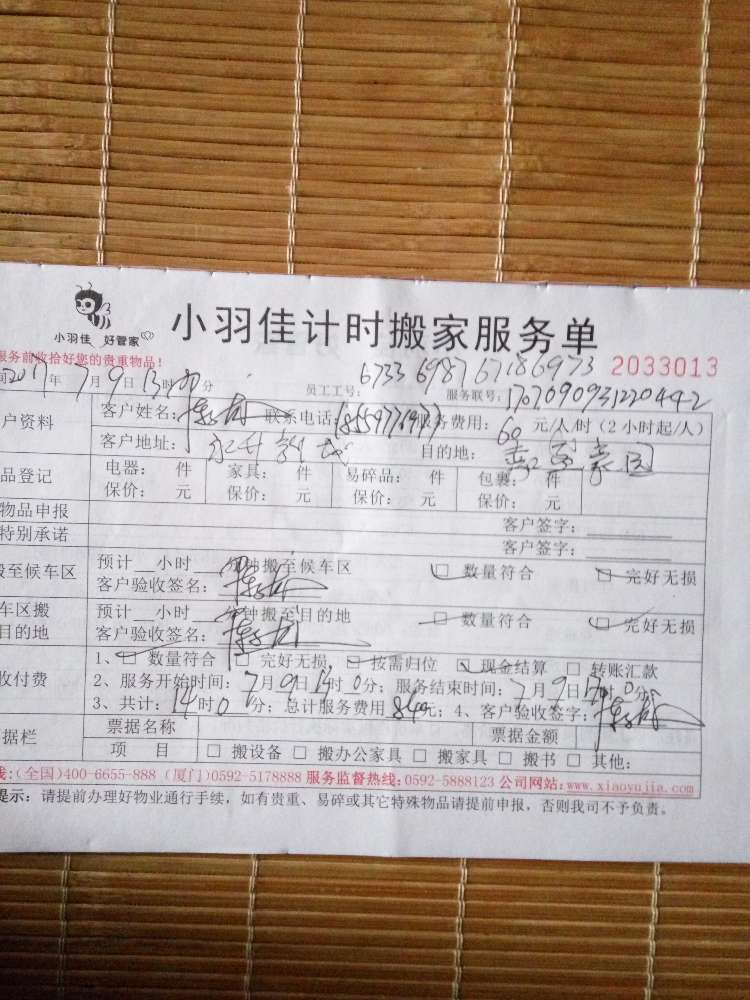 小羽佳 好管家
小羽佳计时搬家服务单
服务前收拾好您的贵重物品!
员工工号: 6733 6987 6718 6973 2033013
间2017年7月9日13时 分 服务联号: 1707090931220492
户资料 客户姓名: 联系电话: 服务费用: 60 元/人/时 (2小时起/人)
客户地址: 目的地: 豪园
品登记 电器: 件 家具: 件 易碎品: 件 包裹: 件
保价: 元 保价: 元 保价: 元 保价: 元
物品申报 客户签字:
特别承诺 客户签字:
搬至候车区 预计__小时__分钟搬至候车区 □ 数量符合 □ 完好无损
客户验收签名:
车区搬 预计__小时__分钟搬至目的地 □ 数量符合 □ 完好无损
目的地 客户验收签名:
收付费 1、□ 数量符合 □ 完好无损 □ 按需归位 □ 现金结算 □ 转账汇款
2、服务开始时间: 7月9日14时0分; 服务结束时间: 7月9日17时0分;
3、共计: 14时0分; 总计服务费用840元; 4、客户验收签字:
据栏 票据名称 票据金额
项 目 □ 搬设备 □ 搬办公家具 □ 搬家具 □ 搬书 □ 其他:
线:(全国)400-6655-888 (厦门)0592-5178888 服务监督热线:0592-5888123 公司网站:www.xiaoyujia.com
提示: 请提前办理好物业通行手续，如有贵重、易碎或其它特殊物品请提前申报，否则我司不予负责。